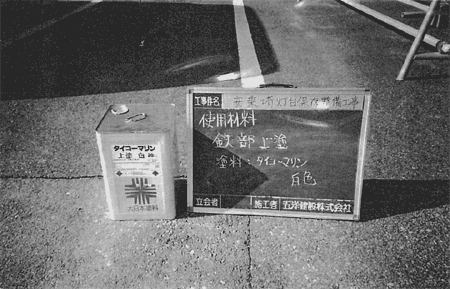 タイコーマリン
上塗 白
大日本塗料
工事件名 安乗埼灯台保全整備工事
使用材料
鉄部上塗
塗料:タイコーマリン
白色
立会者 施工者 五洋建設株式会社